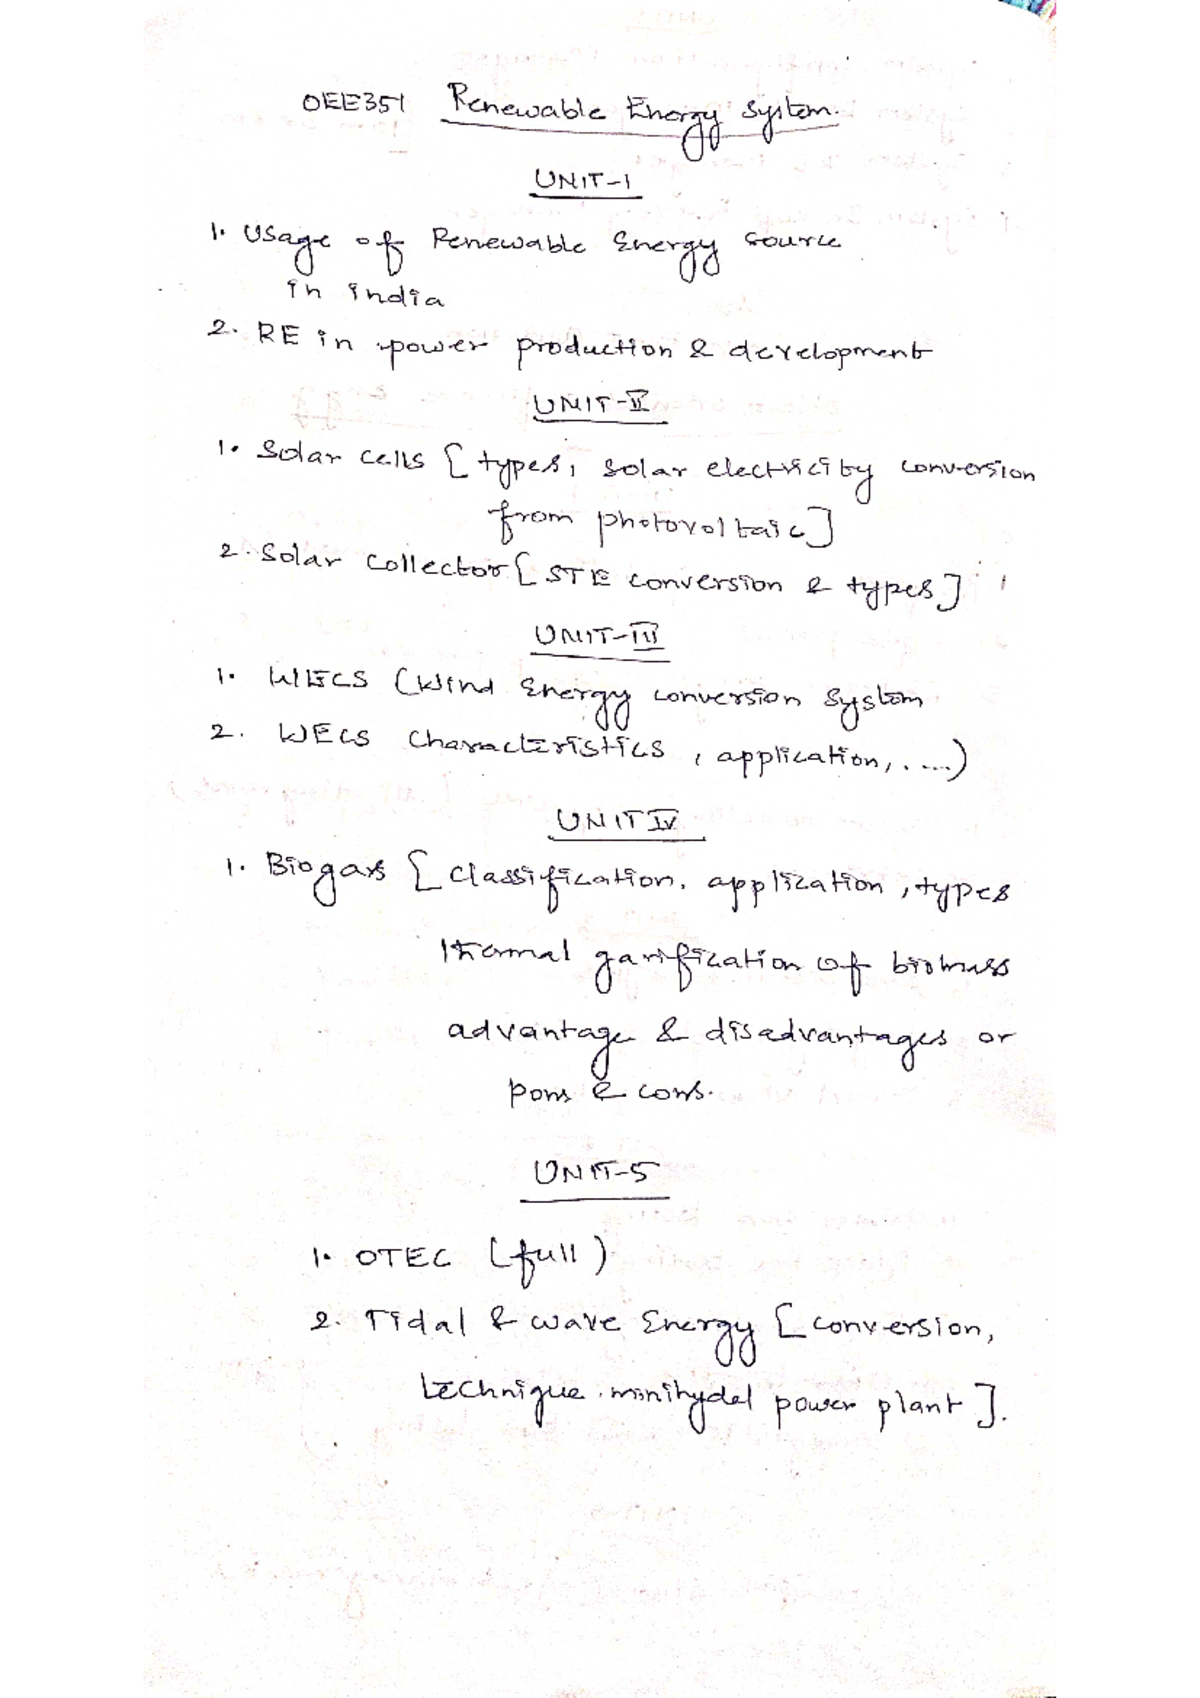 OEE351 Renewable Energy System.
UNIT-1
1. Usage of Renewable Energy source
in india
2. RE in power production & development
UNIT-II
1. Solar cells [types, solar electricity conversion
from photovoltaic]
2. Solar Collector [STE conversion & types]
UNIT-III
1. WECS (Wind Energy conversion System
2. WECS Characteristics, application,.....)
UNIT IV
1. Biogas [classification, application, types
thermal gasification of biomass
advantage & disadvantages or
pons & cons.
UNIT-5
1. OTEC (full)
2. Tidal & wave Energy [conversion,
technique. minihydel power plant].